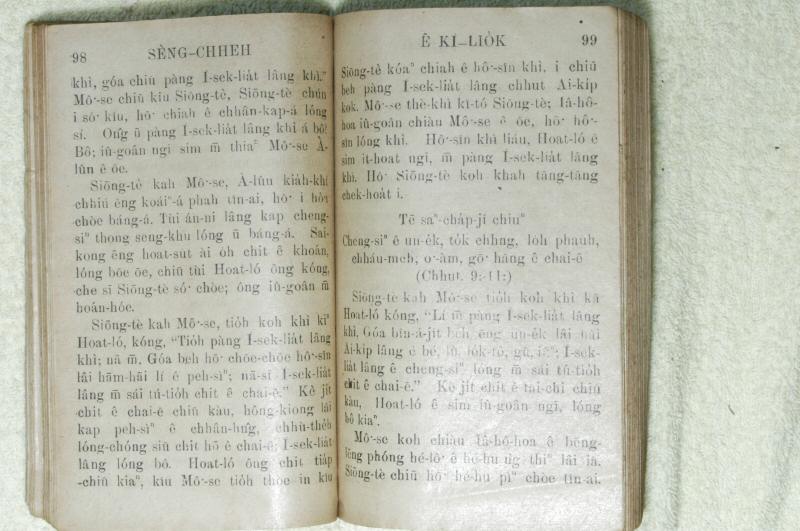 98 SÈNG-CHHEH
khì, góa chiū pàng Í-sek-lia̍t lâng khì.”
Mô·-se chiū kíu Siōng-tè, Siōng-tè chún
i só· kíu, hō· chiah ê chhân-kap-á lóng
sí. Ông ū pàng Í-sek-lia̍t lâng khì á bô?
Bô; iû-goân ngī sim m̄ thiaⁿ Mô·-se À-
lûn ê ōe.
Siōng-tè kah Mô·-se, À-lûn kia̍h-khí
chhiú ēng koáiⁿ-á phah tîn-ai, hō· i hòa
chòe báng-á. Tùi án-ni lâng kap cheng-
siⁿ thong seng-khu lóng ū báng-á. Sai-
kong ēng hoat-sut ài o̍h chit ê khoán,
lóng bōe ōe, chiū tùi Hoat-ló ông kóng,
che sī Siōng-tè só· chòe; ông iû-goân m̄
hoán-hóe.
Siōng-tè kah Mô·-se, tio̍h koh khì kìⁿ
Hoat-ló, kóng, “Tio̍h pàng Í-sek-lia̍t lâng
khì; nā m̄, Góa beh hō· chōe-chōe hô·-sîn
lâi hām-hāi lí ê peh-sìⁿ; nā-sī Í-sek-lia̍t
lâng m̄ sái tú-tio̍h chit ê chai-ē.” Kè ji̍t
chit ê chai-ē chiū kàu, hông-kiong lāi
kap peh-sìⁿ ê chhân-hn̂g, chhù-the̍h
lóng-chóng siū chit hō ê chai-ē; Í-sek-lia̍t
lâng lóng bô. Hoat-ló ông chit tia̍p
-chiū kiaⁿ, kíu Mô·-se tio̍h thòe in kíu
Ê KÌ-LIO̍K 99
Siōng-tè kóaⁿ chiah ê hô·-sîn khì, i chiū
beh pàng Í-sek-lia̍t lâng chhut Ai-ki̍p
kok. Mô·-se thè-khì kî-tó Siōng-tè; Iâ-hô-
hoa iû-goân chiàu Mô·-se ê ōe, hō· hô·-
sîn lóng khì. Hô·-sîn khì liáu, Hoat-ló ê
sim it-hoat ngī, m̄ pàng Í-sek-lia̍t lâng
khì. Hō· Siōng-tè koh khah tāng-tāng
chek-hoa̍t i.
Tē saⁿ-cha̍p-jī chiuⁿ
Cheng-siⁿ ê un-e̍k, to̍k chhng, lo̍h phauh,
chháu-meh, o·-àm, gō· hāng ê chai-ē
(Chhut. 9:-11:)
Siōng-tè kah Mô·-se tio̍h koh khì kā
Hoat-ló kóng, “Lí m̄ pàng Í-sek-lia̍t lâng
khì, Góa bîn-á-ji̍t beh ēng un-e̍k lâi hāi
Ai-ki̍p lâng ê bé, lû, lo̍k-tô, gû, iûⁿ; Í-sek-
lia̍t lâng ê cheng-siⁿ lóng m̄ sái tú-tio̍h
chit ê chai-ē.” Kè ji̍t chit ê tāi-chì chiū
kàu, Hoat-ló ê sim iû-goân ngī, lóng
bô kiaⁿ.
Mô·-se koh chiàu Iâ-hô-hoa ê bēng-
lēng phóng hé-lô· ê hé-hu n̂g thiⁿ lâi iā.
Siōng-tè chiū hō· hé-hu pìⁿ chòe tîn-ai,